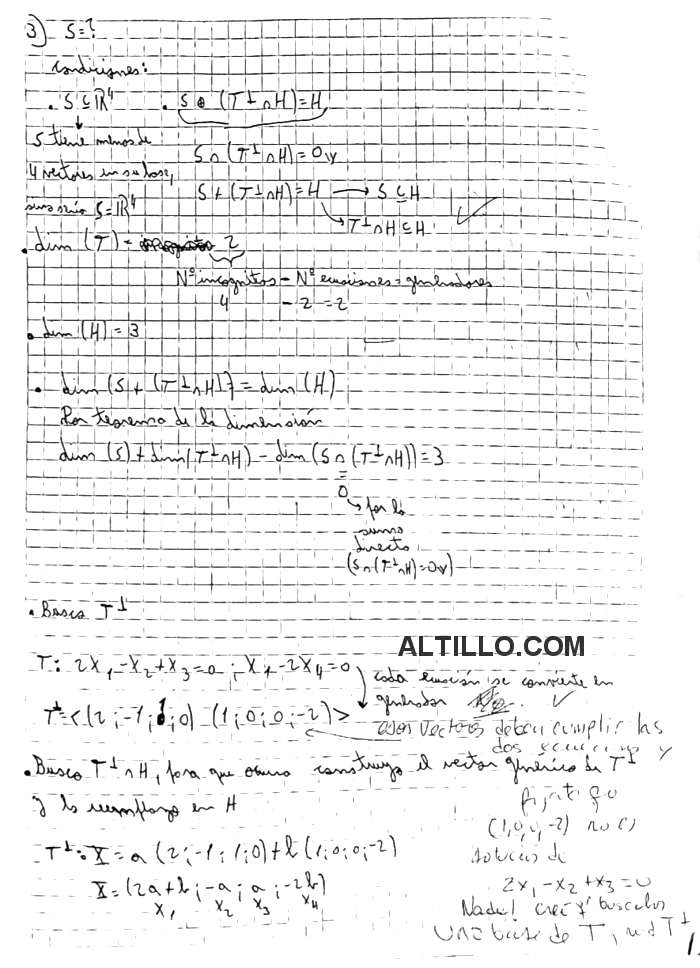 3) S=?
Condiciones:
• S ⊆ ℝ⁴ • S ⊕ (T⊥∩H)=H
S tiene menos de
4 vectores en su base,
sino sería S=ℝ⁴
S∩(T⊥∩H)=0v
S+(T⊥∩H)=H → S⊆H
→ T⊥∩H⊆H
• dim (T) = 2
Nº incognitas - Nº ecuaciones = generadores
4 - 2 = 2
• dim (H) = 3
• dim (S + (T⊥∩H)) = dim (H)
Por teorema de la dimensión
dim (S) + dim(T⊥∩H) - dim (S∩(T⊥∩H)) = 3
=
0
→ por la
suma
directa
(S∩(T⊥∩H)=0v)
• Busco T⊥
ALTILLO.COM
T: 2X₁-X₂+X₃=0 ; X₁-2X₄=0
cada ecuación se convierte en
generador
T⊥=<(2;-1;1;0) (1;0;0;-2)>
esos vectores deben cumplir las
dos ecuaciones y
• Busco T⊥∩H, para que ocurra construyo el vector genérico de T⊥
y lo reemplazo en H
fijate q'
(1,0,0,-2) no es
solución de
2x₁-x₂+x₃=0
T⊥: X = a (2;-1;1;0)+b(1;0;0;-2)
X=(2a+b;-a;a;-2b)
X₁ X₂ X₃ X₄
Nada! creí q' buscabas
una base de T, no T⊥
1.